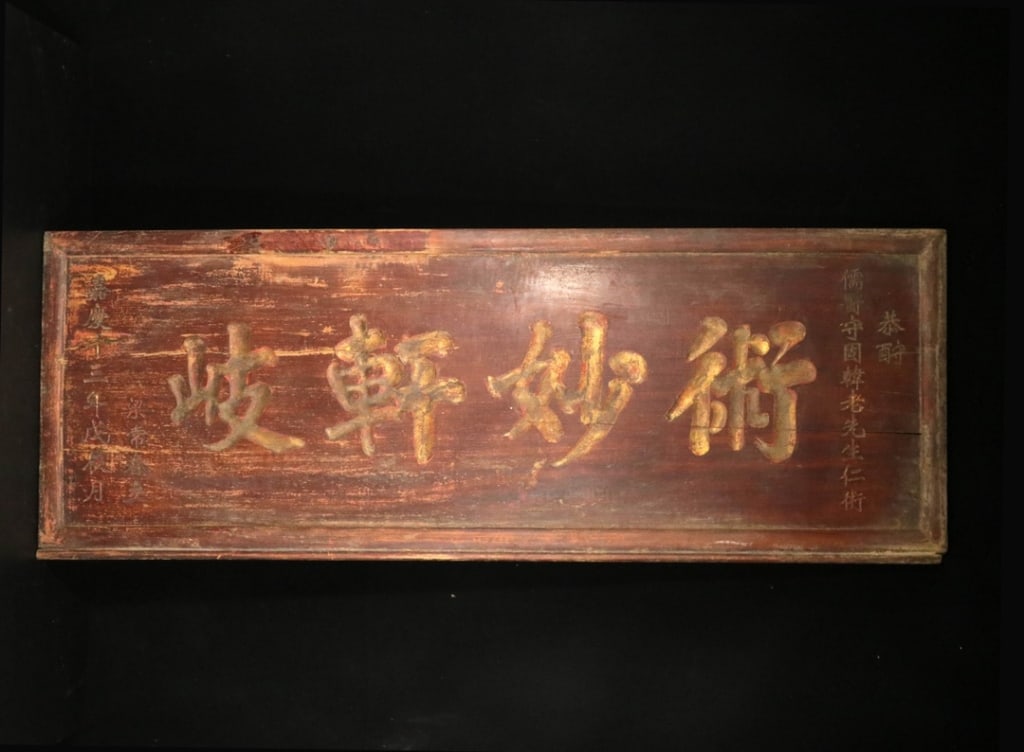 恭酧
儒醫守固韓老先生仁術
術妙軒岐
嘉慶十三年戊辰月